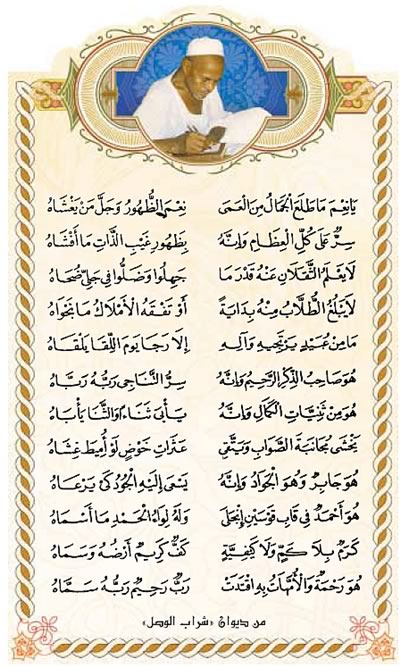 يَانِعْمَ مَا طَلَعَ الْجَمَالُ مِنَ الْعَمَى نِعْمَ الظُّهُورُ وَجَلَّ مَنْ يَغْشَاهُ
سِرٌّ عَلَى كُلِّ الْعِظَامِ وَإِنَّهُ بِظُهُورِ غَيْبِ الذَّاتِ مَا أَفْشَاهُ
لَا يَعْلَمُ الثَّقَلَانِ عَنْهُ قَدْرَ مَا جَهِلُوا وَضَلُّوا فِي جَلِيِّ ضُحَاهُ
لَا يَبْلُغُ الطُّلَّابُ مِنْهُ بِدَايَةً أَوْ تَفْقَهُ الْأَمْلَاكُ مَا نَجْوَاهُ
مَا مِنْ عُبَيْدٍ يَرْتَجِيهِ وَآلِهِ إِلَّا رَجَا يَوْمَ اللِّقَا يَلْقَاهُ
هُوَ صَاحِبُ الذِّكْرِ الرَّحِيمُ وَإِنَّهُ سِرُّ النَّاجِي رَبُّهُ رَبَّاهُ
هُوَ مِنْ ثَنِيَّاتِ الْكَمَالِ وَإِنَّهُ يَأْبَى ثَنَاءً وَالثَّنَا يَأْبَاهُ
يَخْشَى مُجَانَبَةَ الصَّوَابِ وَيَتَّقِي عَثَرَاتِ خَوْضٍ لَوْ أُمِيطَ غِشَاهُ
هُوَ جَابِرٌ وَهُوَ الْجَوَادُ وَإِنَّهُ يَسْعَى إِلَيْهِ الْجُودُ كَيْ يَرْعَاهُ
هُوَ أَحْمَدٌ فِي قَابِ قَوْسَيْنِ انْجَلَى وَلَهُ لِوَاءُ الْحَمْدِ مَا أَسْمَاهُ
كَرَمٌ بِلَا كَمٍّ وَلَا كَيْفِيَّةٍ كَفٌّ كَرِيمٌ أَرْضُهُ وَسَمَاهُ
هُوَ رَحْمَةٌ وَالْأُمَّهَاتُ بِهِ اقْتَدَتْ رَبٌّ رَحِيمٌ رَبُّهُ سَمَّاهُ
من ديوان «شراب الوصل»